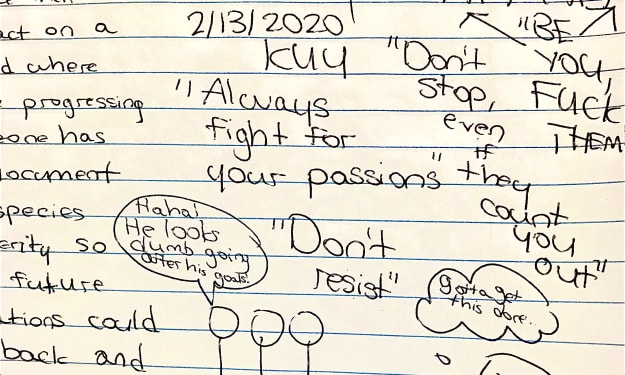 act on a
d where
progressing
eone has
document
species
erity so
future
tions could
back and
2/13/2020
KUY
"Always
fight for
your passions"
"Don't
stop,
even
if
they
count
you
out"
"BE
YOU,
FUCK
THEM
"Don't
resist"
Haha!
He looks
dumb going
after his goals.
gotta get
this done..